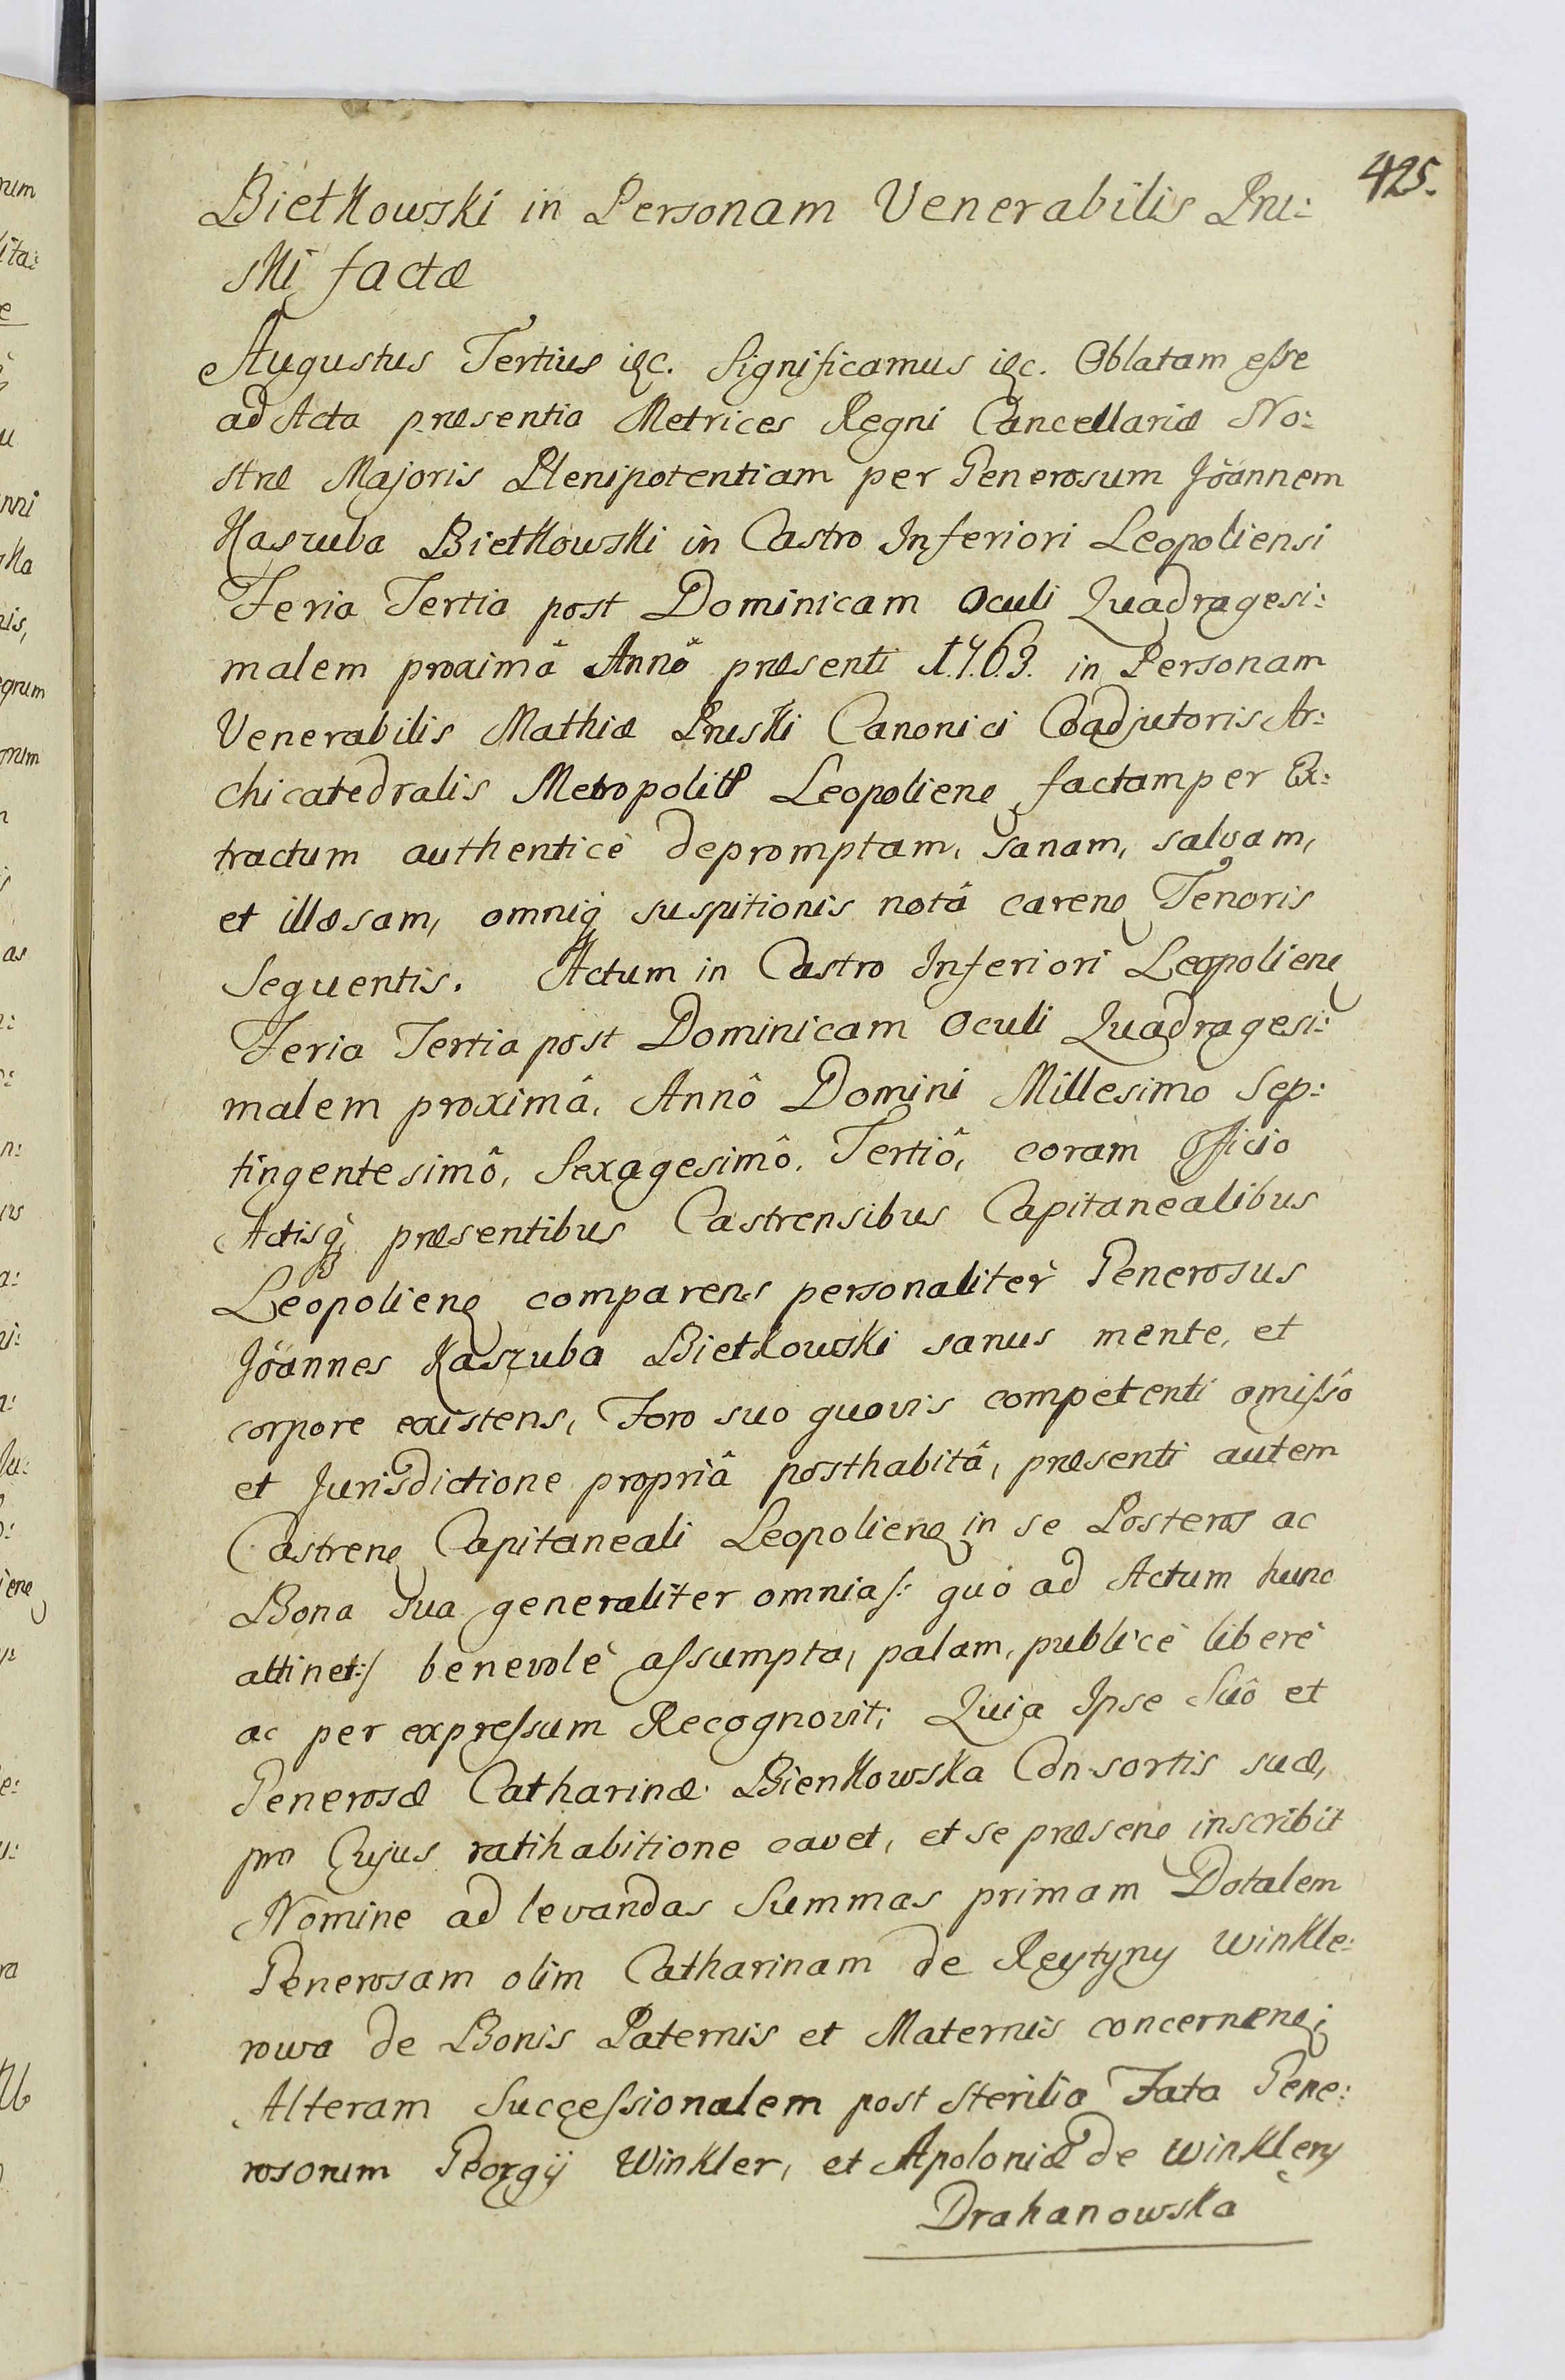 425.
Bietkowski in Personam Venerabilis Pru:
ski factæ
Augustus Tertius &c. Significamus &c. Oblatam eſse
ad Acta præsentia Metrices Regni Cancellariæ No:
stræ Majoris Plenipotentiam per Generosum Jöannem
Kaszuba Bietkowski in Castro Inferiori Leopoliensi
Feria Tertia post Dominicam Oculi Quadragesi:
malem proximâ Annô præsenti 1763. in Personam
Venerabilis Mathiæ Pruski Canonici Coadjutoris Ar:
chicatedralis Metropolit Leopolien factam per Ex:
tractum authenticè depromptam, sanam, salvam,
et illæsam, omniq suspitionis notâ caren Tenoris
Sequentis. Actum in Castro Inferiori Leopolien
Feria Tertia post Dominicam Oculi Quadragesi:
malem proximâ, Annô Domini Millesimo Sep:
tingentesimô, Sexagesimô, Tertiô, coram Officio
Actisq præsentibus Castrensibus Capitanealibus
Leopolien comparens personaliter Generosus
Jöannes Kaszuba Bietkowski sanus mente, et
corpore existens, Foro suo quovis competenti omiſsô
et Jurisdictione propriâ posthabitâ, præsenti autem
Castren Capitaneali Leopolien in se Posteros ac
Bona sua generaliter omnia /: quò ad Actum hunc
attinet :/ benevolè aſsumpta, palam, publicè liberè
ac per expreſsum Recognovit; Quia Ipse Suô et
Generosæ Catharinæ Bienkowska Consortis suæ,
pro Cujus ratihabitione cavet, et se præsen inscribit
Nomine ad levandas Summas primam Dotalem
Generosam olim Catharinam de Reytyny Winkle:
rowa de Bonis Paternis et Maternis concernen;
Alteram Succeſsionalem post sterilia Fata Gene:
rosorum Georgij Winkler, et Apoloniæ de Winklery
Drahanowska